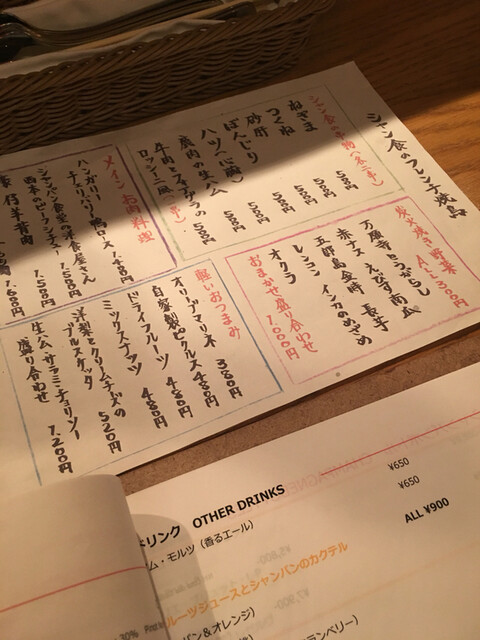 シャン食のフレンチ焼鳥
シャン食の串物(各二串)
ねぎま 580円
つくね 580円
砂肝 580円
ぼんじり 580円
ハツ(心臓) 580円
鹿肉の生ハム 580円
牛肉とフォアグラの
ロッシーニ風(一串) 580円
炭火焼き野菜
ALL 300円
万願寺とうがらし
赤ナス えびす南瓜
五郎島金時 長芋
レンコン インカのめざめ
オクラ
おまかせ盛り合わせ
1,000円
メインお肉料理
ハンガリー
チェリバリー鴨ロース
シャンパン食堂の洋食屋さん
軽いおつまみ
オリーブマリネ 380円
自家製ピクルス 480円
ドライフルーツ 480円
ミックスナッツ 480円
洋梨とクリームチーズの
ブルスケッタ 520円
生ハム・サラミ・チョリソー
盛り合わせ 1,200円
ドリンク OTHER DRINKS
¥650
ム・モルツ（香るエール） ¥650
ALL ¥900
ルーツジュースとシャンパンのカクテル
パン＆オレンジ)
ランベリー)